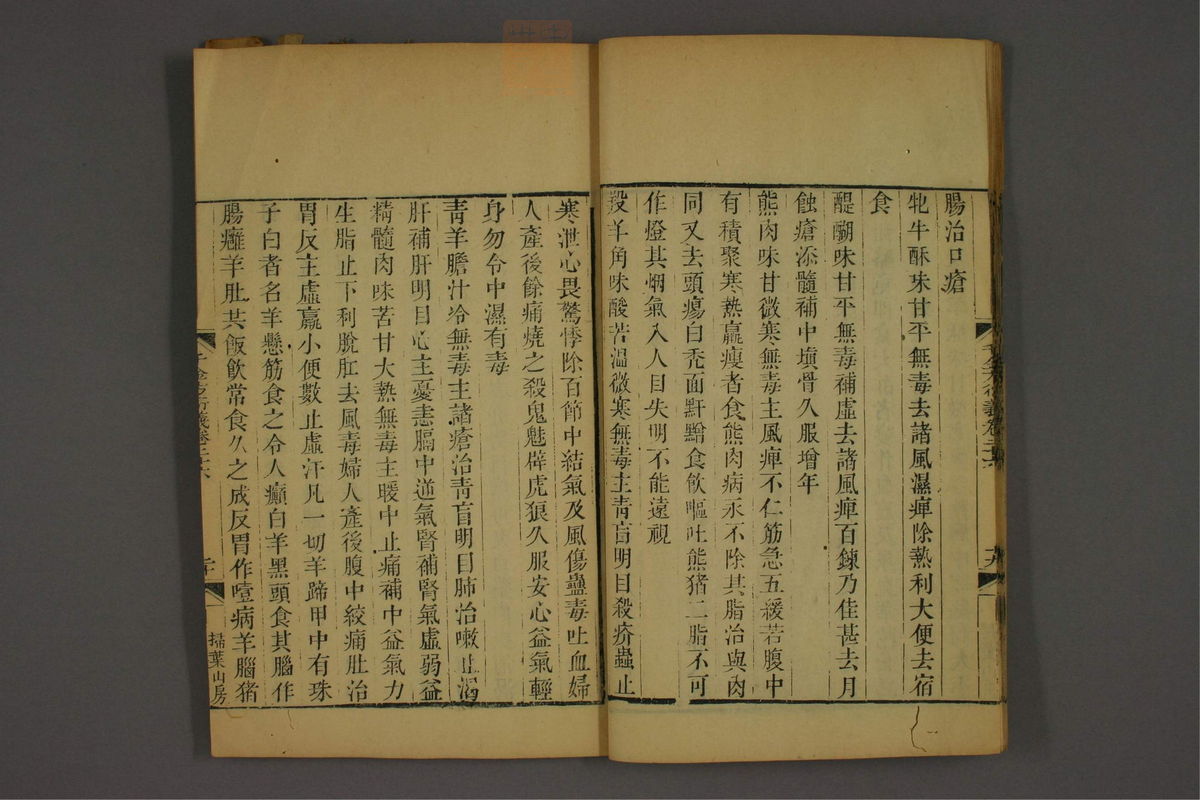 腸治口瘡
牝牛酥味甘平無毒去諸風濕痺除熱利大便去宿
食
醍醐味甘平無毒補虛去諸風痺百鍊乃佳甚去月
蝕瘡添髓補中塡骨久服增年
熊肉味甘微寒無毒主風痺不仁筋急五緩若腹中
有積聚寒熱羸瘦者食熊肉病永不除其脂治與肉
同又去頭瘍白禿面䵟䵳食飲嘔吐熊猪二脂不可
作燈其烟氣入人目失明不能遠視
羖羊角味酸苦溫微寒無毒主青盲明目殺疥蟲止
千金方衍義卷二十六
十九
寒泄心畏驚悸除百節中結氣及風傷蠱毒吐血婦
人產後餘痛燒之殺鬼魅辟虎狼久服安心益氣輕
身勿令中濕有毒
青羊膽汁冷無毒主諸瘡治青盲明目肺治嗽止渴
肝補肝明目心主憂恚膈中逆氣腎補腎氣虛弱益
精髓肉味苦甘大熱無毒主暖中止痛補中益氣力
生脂止下利脫肛去風毒婦人產後腹中絞痛肚治
胃反主虛羸小便數止虛汗凡一切羊蹄甲中有珠
子白者名羊懸筋食之令人癲白羊黑頭食其腦作
腸癰羊肚共飯飲常食久之成反胃作噎病羊腦猪
千金方衍義卷二十六
二十
掃葉山房